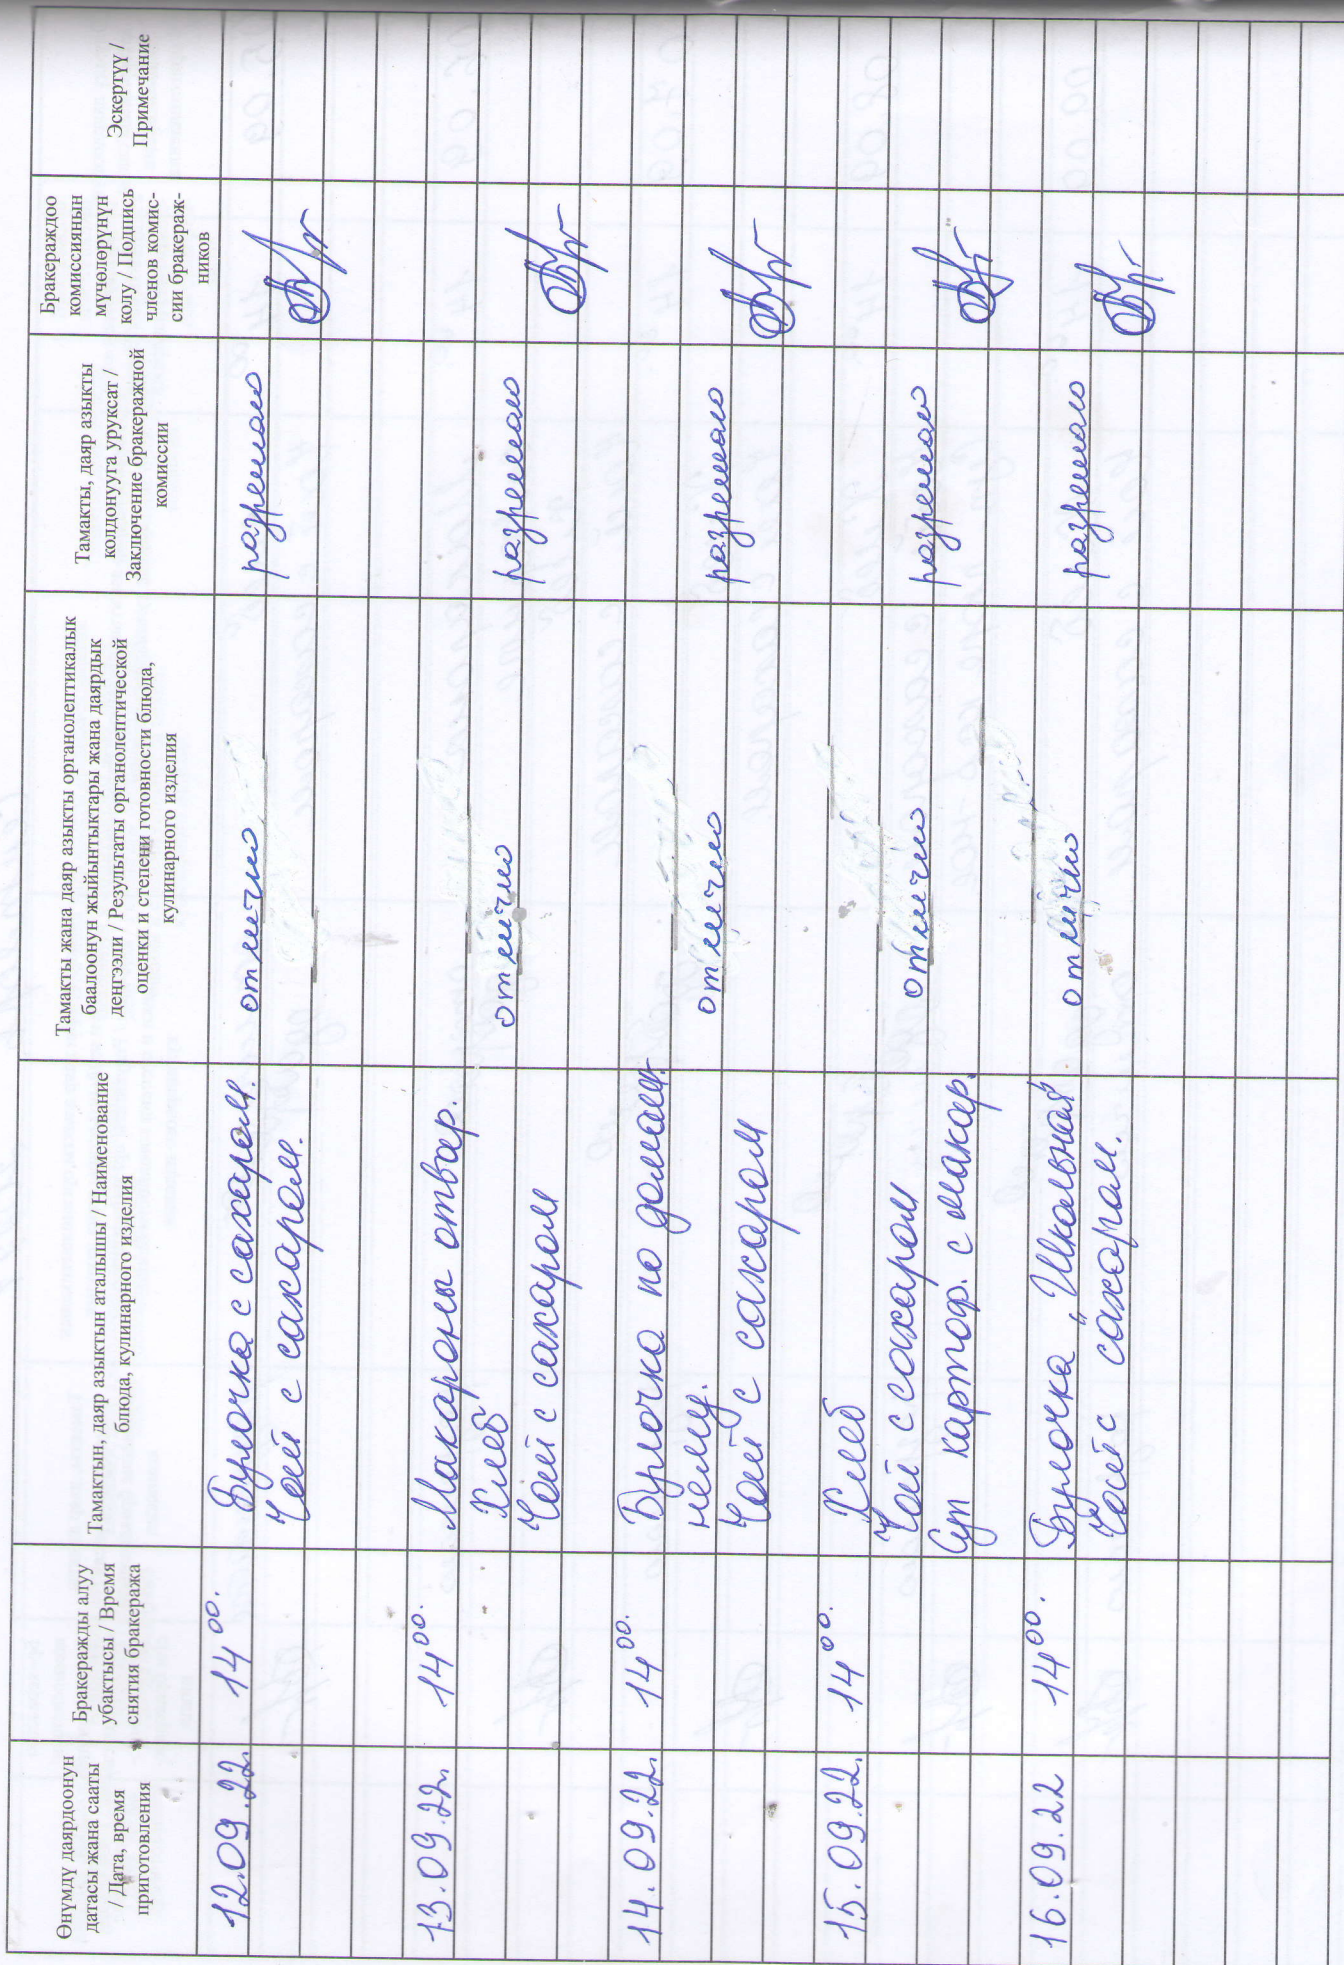 Өнүмдү даярдоонун
датасы жана сааты
/ Дата, время
приготовления
Бракеражды алуу
убактысы / Время
снятия бракеража
Тамактын, даяр азыктын аталышы / Наименование
блюда, кулинарного изделия
Тамакты жана даяр азыкты органолептикалык
баалоонун жыйынтыктары жана даярдык
деңгээли / Результаты органолептической
оценки и степени готовности блюда,
кулинарного изделия
Тамакты, даяр азыкты
колдонууга уруксат /
Заключение бракеражной
комиссии
Бракераждоо
комиссиянын
мүчөлөрүнүн
колу / Подпись
членов комис-
сии бракераж-
ников
Эскертүү /
Примечание
12.09.22. 14 00. Булочка с сахаром. отлично разрешаю
Чай с сахаром.
13.09.22. 14 00. Макароны отвар.
Хлеб отлично разрешаю
Чай с сахаром
14.09.22. 14 00. Булочка по домаш-
нему. отлично разрешаю
Чай с сахаром
15.09.22. 14 00. Хлеб
Чай с сахаром отлично разрешаю
Суп картоф. с макар.
16.09.22 14 00. Булочка „Школьная" отлично разрешаю
Чай с сахаром.